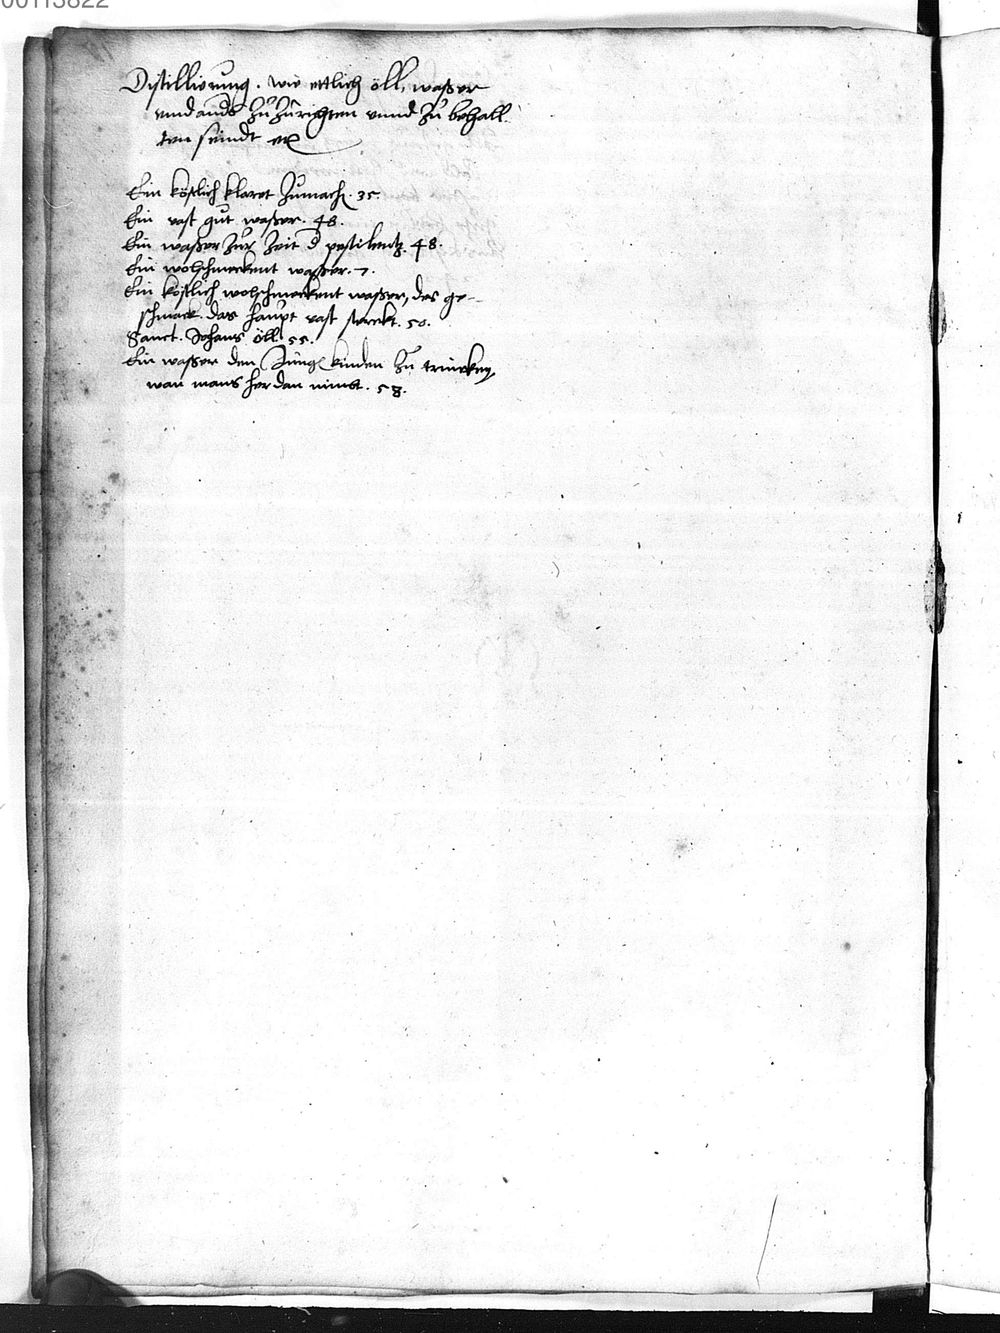 Distillierung. wie ettlich öll, waßer
vnd andrs zu zurichten vnnd zu behall
ten seindt
Ein köstlich klaret zumach. 35.
Ein vast gut waßer. 48.
Ein waßer zur zeit d pestilentz 48.
Ein wolschmeckent waßer. 7.
Ein köstlich wolschmeckent waßer, des ge-
schmack. das haupt vast sterckt. 50.
Sanct. Johans öll. 55.
Ein waßer den Jung kinden zu trincken
wan mans her dan nimbt. 58.